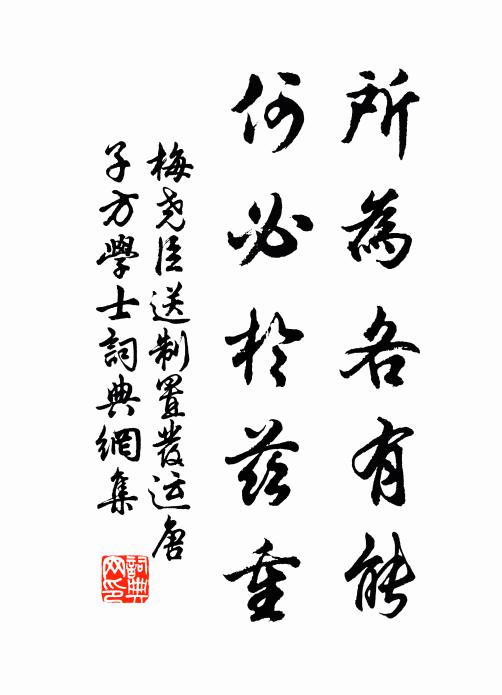 所為各有能
何必於茲重
梅堯臣送制置發運唐
子方學士詞典網集
詞典網印